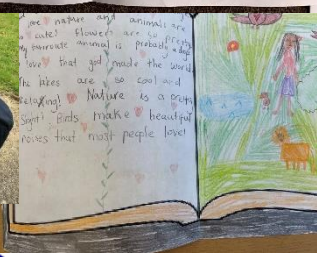 love nature and animals are
cute! flowers are so pretty
My favourite animal is probably a dog
love that god made the world
The lakes are so cool and
relaxing! Nature is a pretty
Sight! Birds make beautiful
noises that most people love!